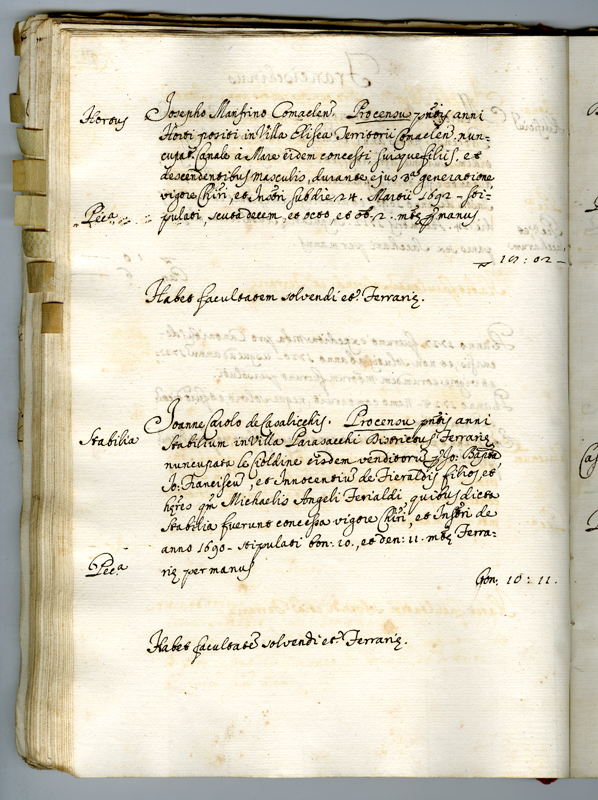 Hortus
Josepho Manfrino Comaclen. Pro censu pntis anni
Horti positi in Villa Elisea Territorii Comaclen. nun-
cupat. Canale à Mare eidem concessi suisque filiis, et
descendentibus masculis, durante ejus 3.a generatione
vigore Chiri, et Instri sub die 24. Martii 1692 - sti-
Pec.a
pulati, scuta decem, et octo, et ob. 2. mtæ p manus
18 : 02 -
Habet facultatem solvendi et. Ferrariæ.
Stabilia
Joanne Carolo de Casalicchis. Pro censu pntis anni
Stabilium in Villa Parasacchi Districtus Ferrariæ
nuncupata le eisdem venditorii p Jo: Bapta
Jo: Franciscu, et Innocentiu de Fieraldis filios, et
hæres qm Michaelis Angeli Ferialdi, quibus dicta
Stabilia fuerunt concessa vigore Chiri, et Instri de
anno 1690 - stipulati bon: 10., et den: 11. mtæ Ferra-
Pec.a
riæ per manus
bon. 10 : 11.
Habet facultate solvendi et. Ferrariæ.